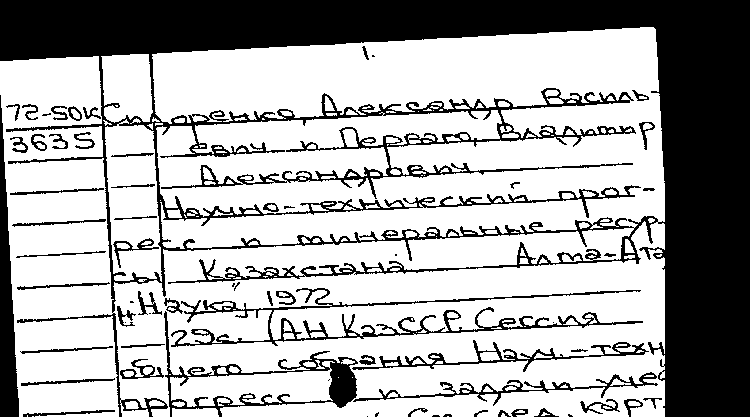 1.
72-50к Сидоренко, Александр Василь-
3635 евич и Перваго, Владимир
Александрович.
Научно-технический прог-
ресс и минеральные ресур
сы Казахстана Алма-Ата
"Наука", 1972.
29с. (АН КазССР. Сессия
общего собрания Науч.-техн
прогресс и задачи уче
См след. карт.